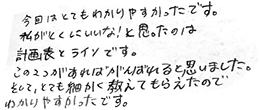 今回はとてもわかりやすかったです。
私がとくにいいな!と思ったのは
計画表とラインです。
この2つがあればがんばれると思いました。
そして、とても細かく教えてもらえたので
わかりやすかったです。